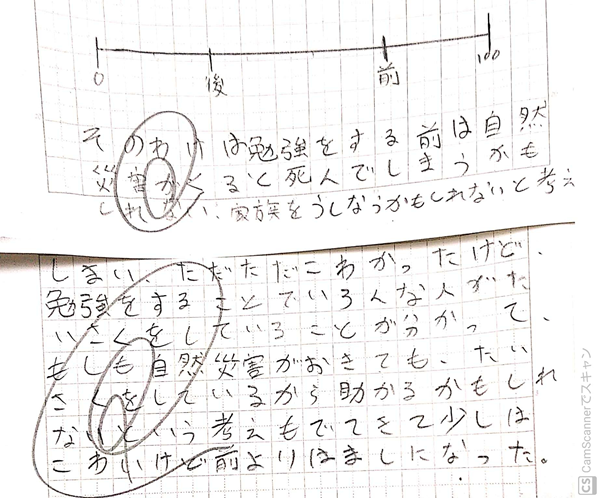 0 後 前 100
そのわけは勉強をする前は自然
災害がくると死んでしまうかも
しれない、家族をうしなうかもしれないと考え
しまい、ただただこわかったけど、
勉強をすることでいろんな人がた
いさくをしていることが分かって、
もしも自然災害がおきても、たい
さくをしているから助かるかもしれ
ないという考えもでてきて少しは
こわいけど前よりはましになった。
CS CamScannerでスキャン